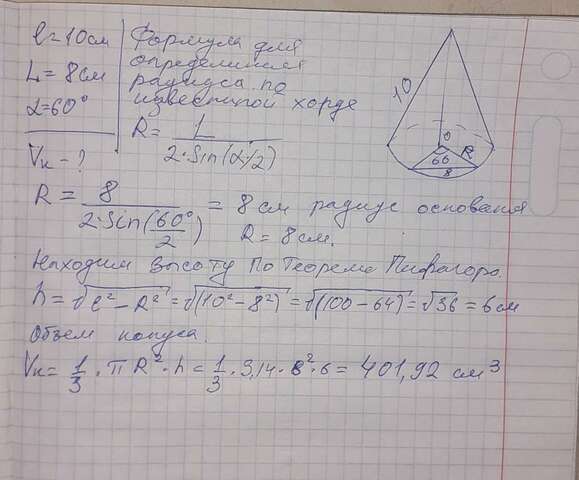 l=10см
L=8см
α=60°
Vк-?
Формула для
определения
радиуса по
известной хорде
R = L / 2·Sin(α/2)
10
O
R
60
8
R = 8 / 2·Sin(60°/2) = 8 см радиус основания
R=8см.
Находим высоту по Теореме Пифагора.
h = √l²-R² = √(10²-8²) = √(100-64) = √36 = 6 см
Объем конуса.
Vк = 1/3 · π R² · h = 1/3 · 3,14 · 8² · 6 = 401,92 см³